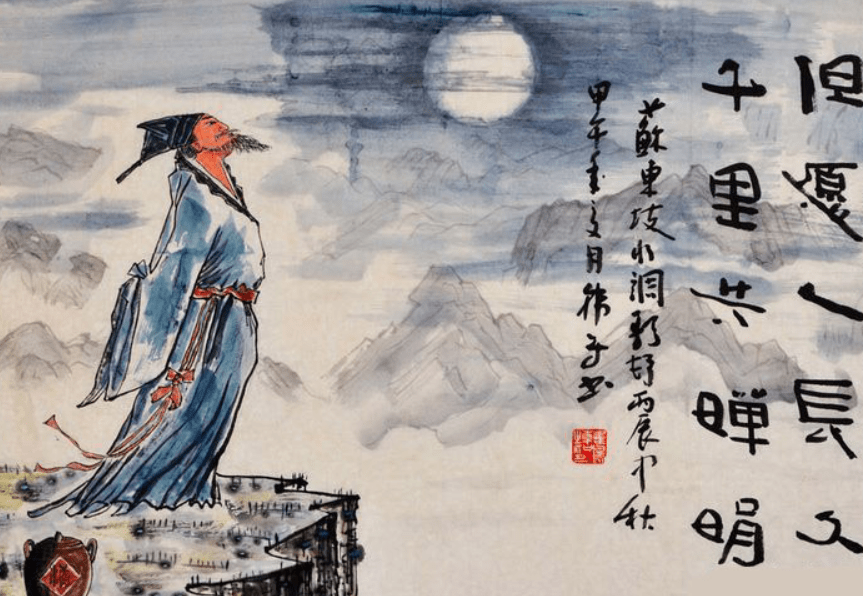 但愿人長久
千里共嬋娟
蘇東坡水調歌頭丙辰中秋
甲午月书
酒